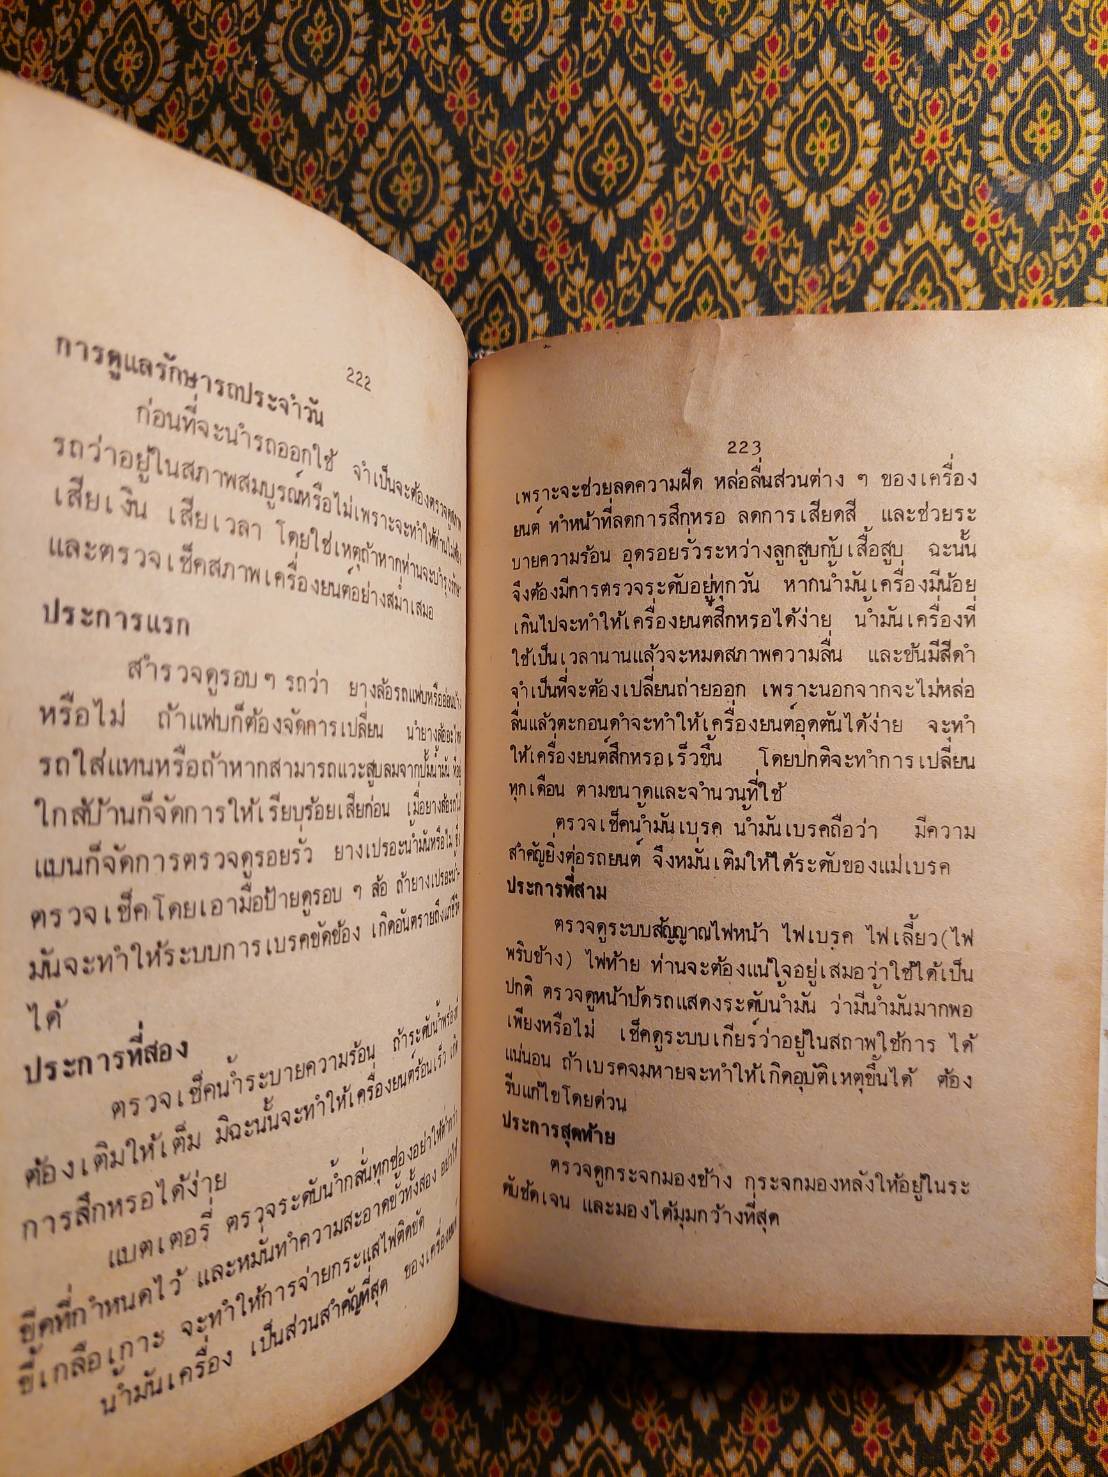 222
การดูแลรักษารถประจำวัน
ก่อนที่จะนำรถออกใช้ จำเป็นจะต้องตรวจดู
รถว่าอยู่ในสภาพสมบูรณ์หรือไม่เพราะจะทำให้ท่านไม่ต้อง
เสียเงิน เสียเวลา โดยใช่เหตุถ้าหากท่านจะบำรุงรักษา
และตรวจเช็คสภาพเครื่องยนต์อย่างสม่ำเสมอ
ประการแรก
สำรวจดูรอบๆ รถว่า ยางล้อรถแฟบหรืออ่อนบ้าง
หรือไม่ ถ้าแฟบก็ต้องจัดการเปลี่ยน นำยางล้ออะไหล่
รถใส่แทนหรือถ้าหากสามารถแวะสูบลมจากปั้มน้ำมัน ที่อยู่
ใกล้บ้านก็จัดการให้เรียบร้อยเสียก่อน เมื่อยางล้อรถไม่
แบนก็จัดการตรวจดูรอยรั่ว ยางเปรอะน้ำมันหรือไม่ ซึ่ง
ตรวจเช็คโดยเอามือป้ายดูรอบ ๆ ล้อ ถ้ายางเปรอะน้ำ-
มันจะทำให้ระบบการเบรคขัดข้อง เกิดอันตรายถึงแก่ชีวิต
ได้
ประการที่สอง
ตรวจเช็คน้ำระบายความร้อน ถ้าระดับน้ำพร่องก็
ต้องเติมให้เต็ม มิฉะนั้นจะทำให้เครื่องยนต์ร้อนเร็ว
การสึกหรอได้ง่าย
แบตเตอรี่ ตรวจระดับน้ำกลั่นทุกช่องอย่าให้ต่ำกว่า
ขีดที่กำหนดไว้ และหมั่นทำความสะอาดขั้วทั้งสอง อย่าให้
ขี้เกลือเกาะ จะทำให้การจ่ายกระแสไฟติดขัด
น้ำมันเครื่อง เป็นส่วนสำคัญที่สุด ของเครื่องยนต์
223
เพราะจะช่วยลดความฝืด หล่อลื่นส่วนต่าง ๆ ของเครื่อง
ยนต์ ทำหน้าที่ลดการสึกหรอ ลดการเสียดสี และช่วยระ
บายความร้อน อุดรอยรั่วระหว่างลูกสูบกับเสื้อสูบ ฉะนั้น
จึงต้องมีการตรวจระดับอยู่ทุกวัน หากน้ำมันเครื่องมีน้อย
เกินไปจะทำให้เครื่องยนต์สึกหรอได้ง่าย น้ำมันเครื่องที่
ใช้เป็นเวลานานแล้วจะหมดสภาพความลื่น และข้นมีสีดำ
จำเป็นที่จะต้องเปลี่ยนถ่ายออก เพราะนอกจากจะไม่หล่อ
ลื่นแล้วตะกอนดำจะทำให้เครื่องยนต์อุดตันได้ง่าย จะทำ
ให้เครื่องยนต์สึกหรอเร็วขึ้น โดยปกติจะทำการเปลี่ยน
ทุกเดือน ตามขนาดและจำนวนที่ใช้
ตรวจเช็คน้ำมันเบรค น้ำมันเบรคถือว่า มีความ
สำคัญยิ่งต่อรถยนต์ จึงหมั่นเติมให้ได้ระดับของแม่เบรค
ประการที่สาม
ตรวจดูระบบสัญญาณไฟหน้า ไฟเบรค ไฟเลี้ยว(ไฟ
พริบข้าง) ไฟท้าย ท่านจะต้องแน่ใจอยู่เสมอว่าใช้ได้เป็น
ปกติ ตรวจดูหน้าปัดรถแสดงระดับน้ำมัน ว่ามีน้ำมันมากพอ
เพียงหรือไม่ เช็คดูระบบเกียร์ว่าอยู่ในสถาพใช้การ ได้
แน่นอน ถ้าเบรคจมหายจะทำให้เกิดอุบัติเหตุขึ้นได้ ต้อง
รีบแก้ไขโดยด่วน
ประการสุดท้าย
ตรวจดูกระจกมองข้าง กระจกมองหลังให้อยู่ในระ
ดับชัดเจน และมองได้มุมกว้างที่สุด